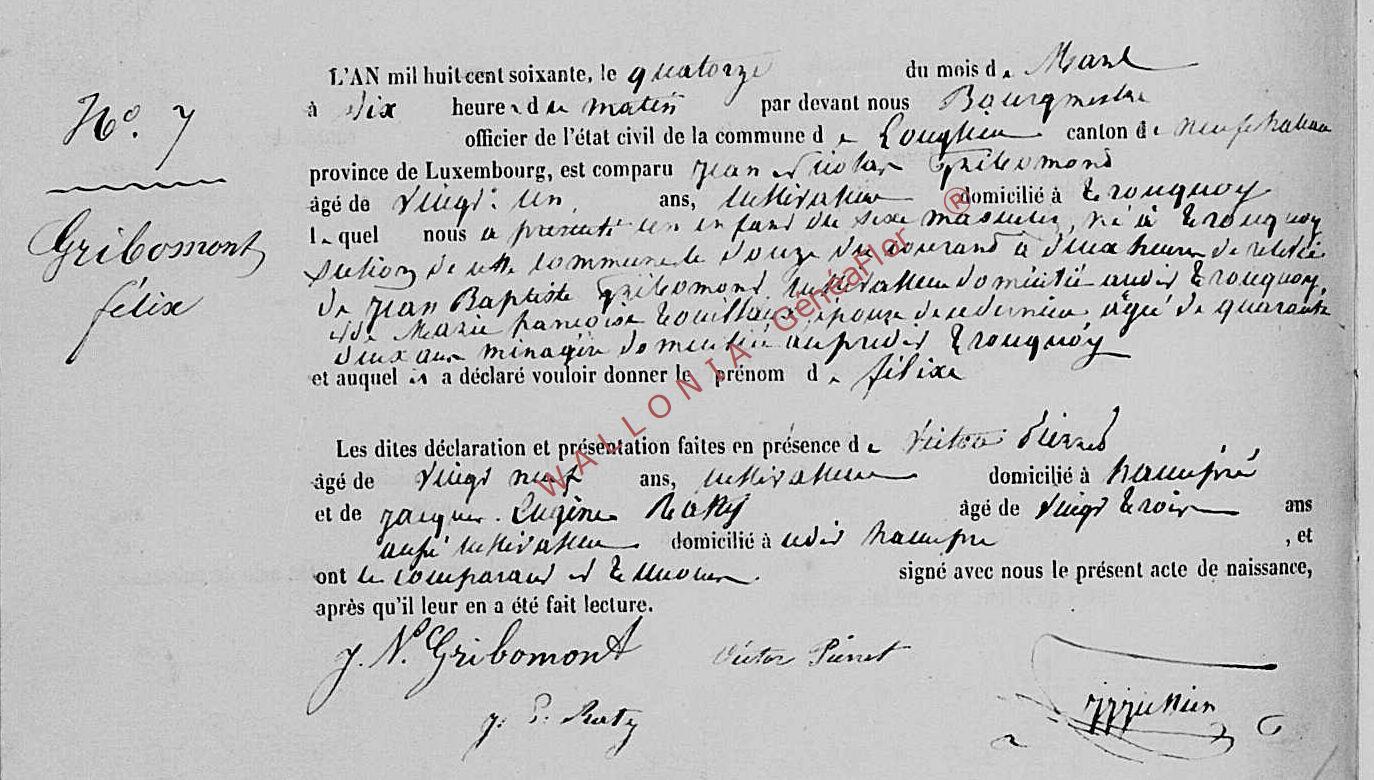 N°. 7
Gribomont
félix
L'AN mil huit cent soixante, le quatorze du mois de Mars
à dix heures du matin par devant nous Bourgmestre
officier de l'état civil de la commune de Longlier canton de neufchateau
province de Luxembourg, est comparu jean nicolas Gribomont
âgé de vingt un ans, cultivateur domicilié à tronquoy
lequel nous a présenté un enfant du sexe masculin, né à tronquoy
section de cette commune le douze du courant à deux heures de relevée
de jean Baptiste Gribomont cultivateur domicilié audit tronquoy,
et de Marie françoise, épouse de ce dernier âgée de quarante
deux ans ménagère domiciliée au prédit tronquoy
et auquel il a déclaré vouloir donner le prénom de félixe
Les dites déclaration et présentation faites en présence de Victor Pierret
âgé de vingt neuf ans, cultivateur domicilié à hamipré
et de jacques Eugène Raty âgé de vingt trois ans
aussi cultivateur domicilié à udit hamipre, et
ont les comparant et témoins signé avec nous le présent acte de naissance,
après qu'il leur en a été fait lecture.
J. N. Gribomont Victor Pierret
j. E. Raty
WALLONIA GenéaFlor ®